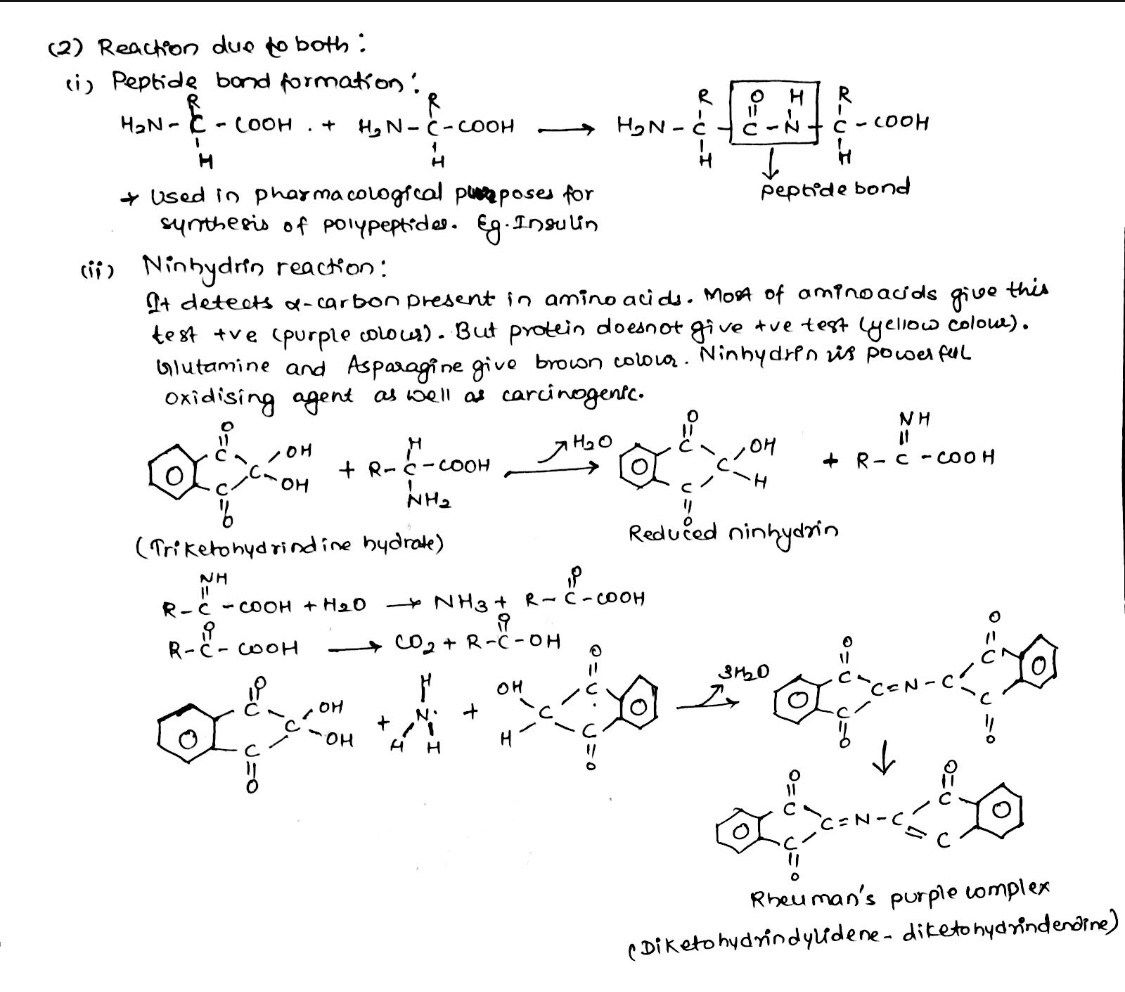 (2) Reaction due to both :
(i) Peptide bond formation :
R R R O H R
H2N - C - COOH . + H2N - C - COOH → H2N - C - C - N - C - COOH
H H H H
peptide bond
* Used in pharmacological purposes for
synthesis of polypeptides. Eg. Insulin
(ii) Ninhydrin reaction :
It detects α-carbon present in amino acids. Most of aminoacids give this
test +ve (purple colour). But protein doesnot give +ve test (yellow colour).
Glutamine and Asparagine give brown colour. Ninhydrin is powerful
oxidising agent as well as carcinogenic.
O H O NH
C OH H2O C OH
C + R - C - COOH → C + R - C - COOH
C OH NH2 C H
O O
(Triketohydrindine hydrate) Reduced ninhydrin
NH O
R - C - COOH + H2O → NH3 + R - C - COOH
O O
R - C - COOH → CO2 + R - C - OH
O H OH O 3H2O O O
C OH C C C
C + N + C → C = N - C
C OH H H H C C C
O O O O
↓
O O
C C
C = N - C
C C
O
Rheuman's purple complex
(Diketohydrindylidene - diketohydrindendine)